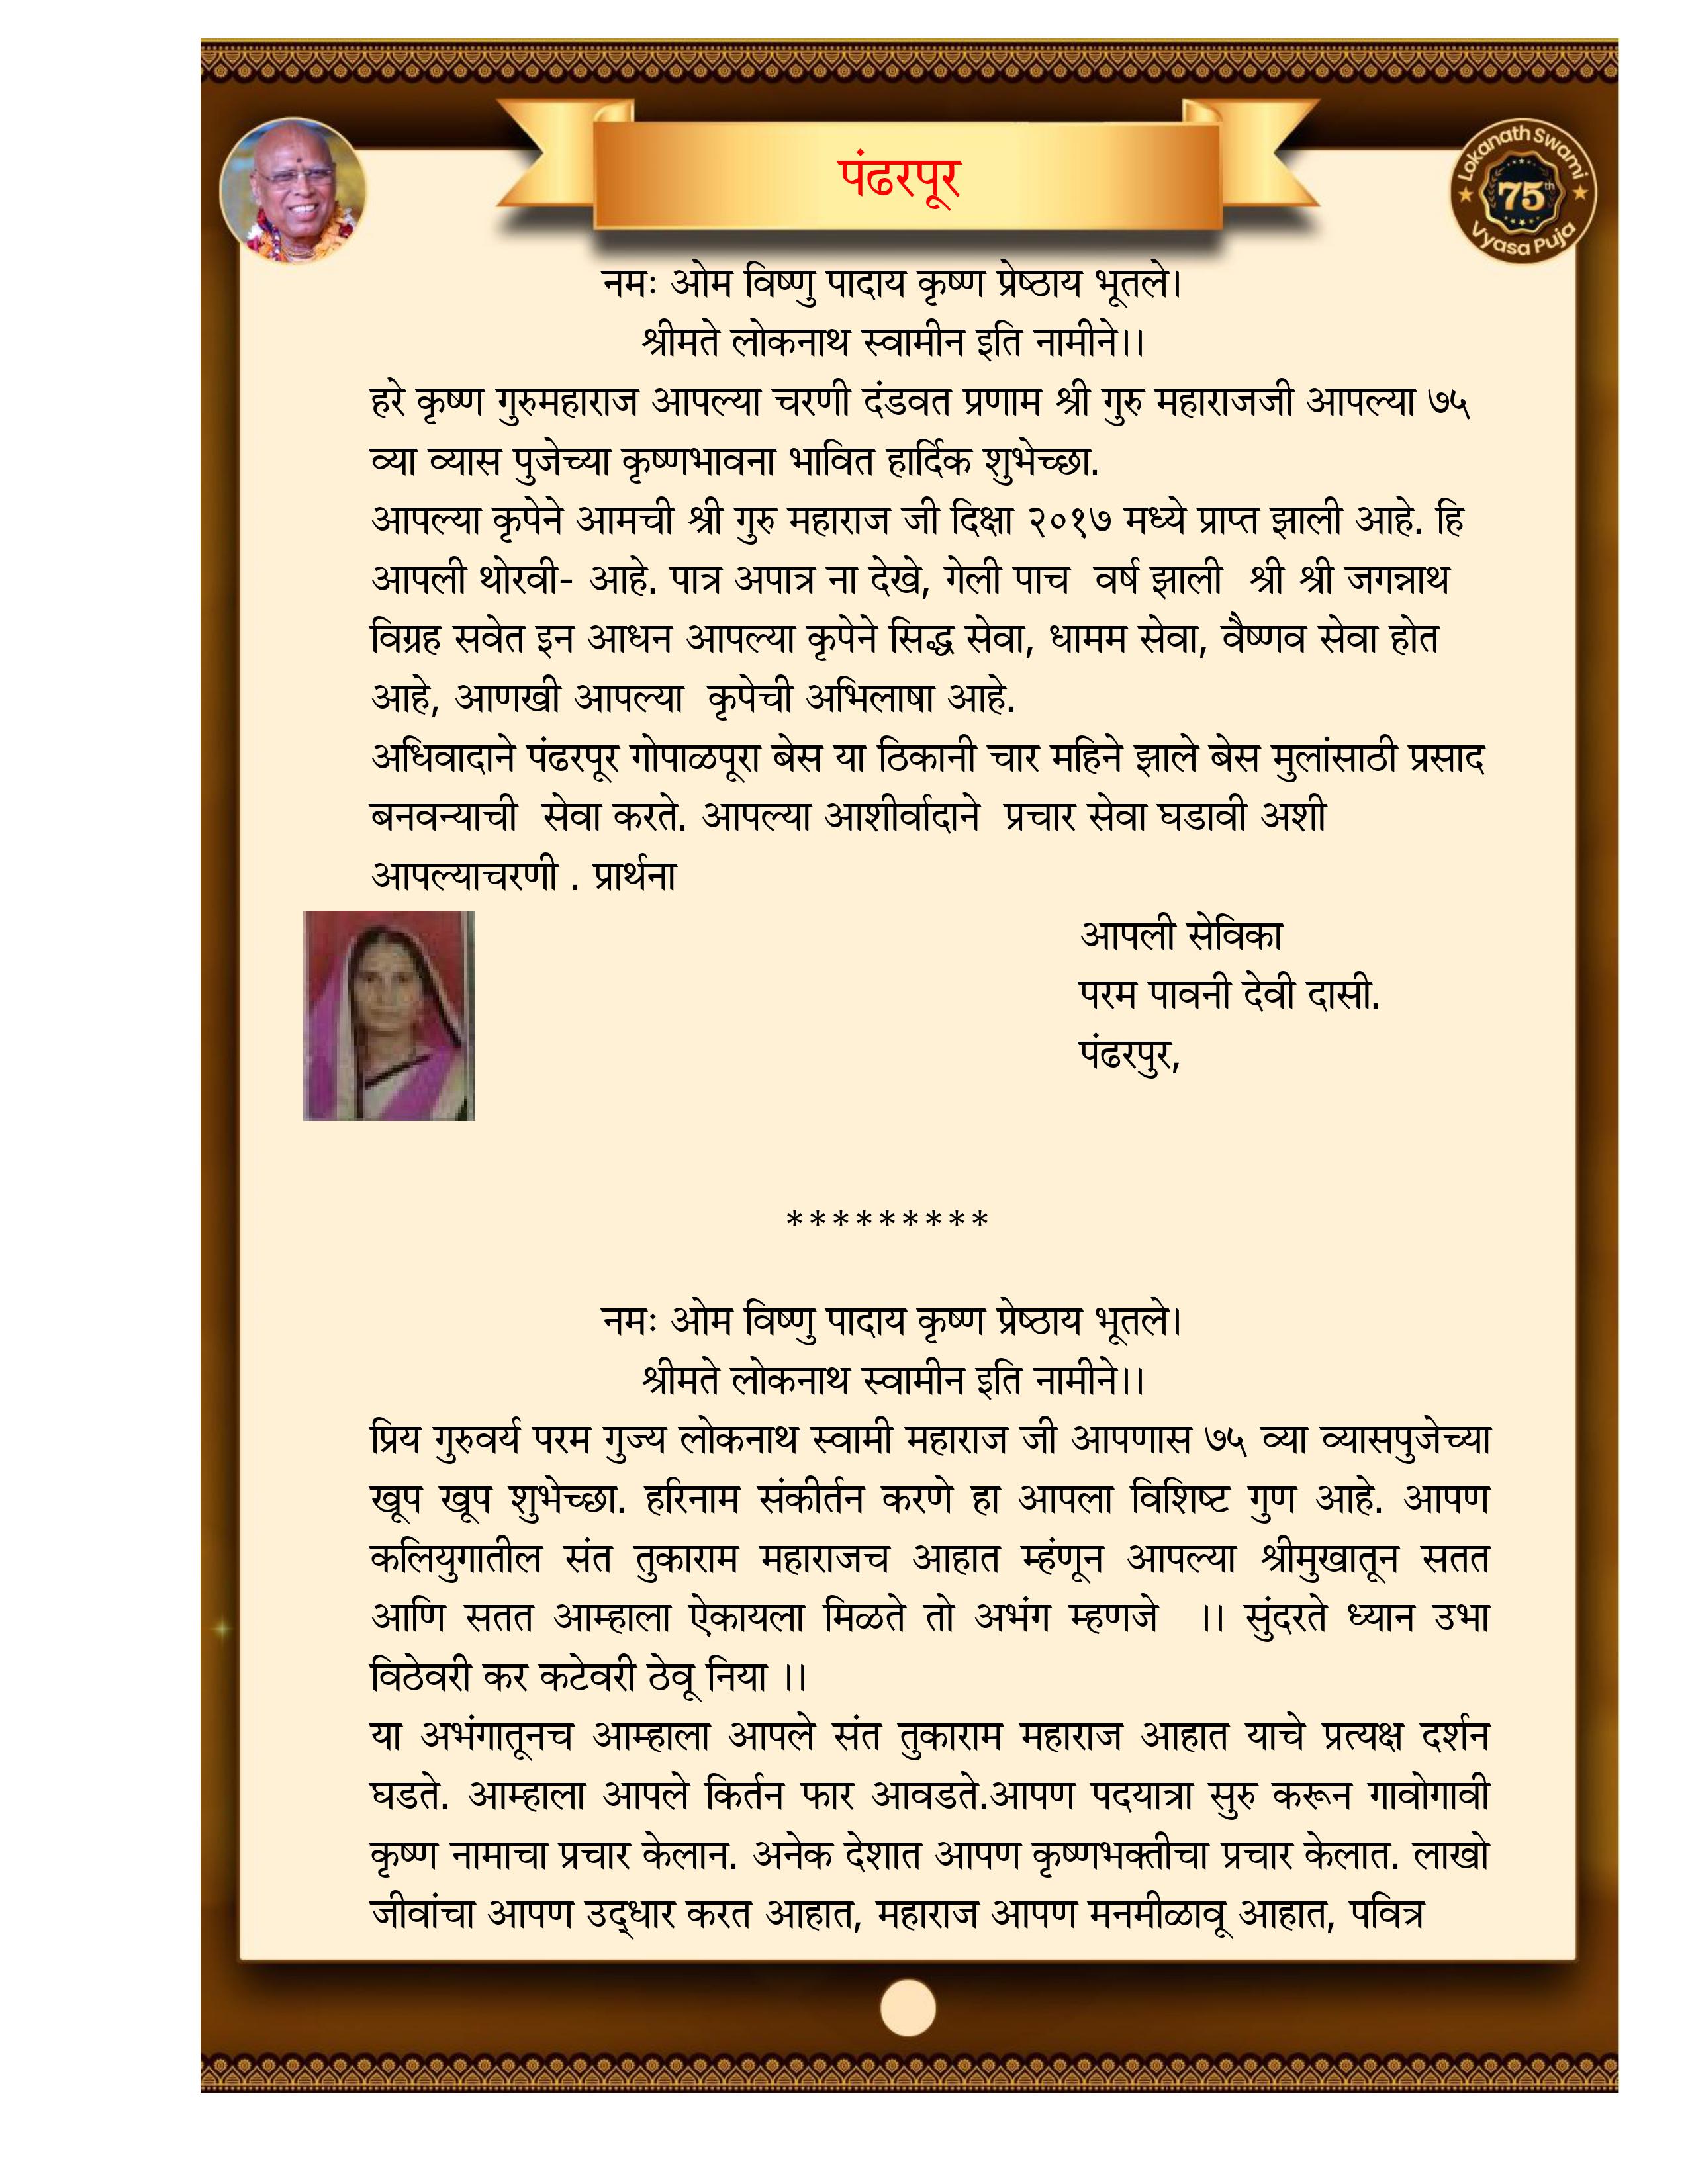 पंढरपूर
Lokanath Swami
75th
Vyasa Puja
नमः ओम विष्णु पादाय कृष्ण प्रेष्ठाय भूतले।
श्रीमते लोकनाथ स्वामीन इति नामीने।।
हरे कृष्ण गुरुमहाराज आपल्या चरणी दंडवत प्रणाम श्री गुरु महाराजजी आपल्या ७५
व्या व्यास पुजेच्या कृष्णभावना भावित हार्दिक शुभेच्छा.
आपल्या कृपेने आमची श्री गुरु महाराज जी दिक्षा २०१७ मध्ये प्राप्त झाली आहे. हि
आपली थोरवी- आहे. पात्र अपात्र ना देखे, गेली पाच वर्ष झाली श्री श्री जगन्नाथ
विग्रह सवेत इन आधन आपल्या कृपेने सिद्ध सेवा, धामम सेवा, वैष्णव सेवा होत
आहे, आणखी आपल्या कृपेची अभिलाषा आहे.
अधिवादाने पंढरपूर गोपाळपूरा बेस या ठिकानी चार महिने झाले बेस मुलांसाठी प्रसाद
बनवन्याची सेवा करते. आपल्या आशीर्वादाने प्रचार सेवा घडावी अशी
आपल्याचरणी . प्रार्थना
आपली सेविका
परम पावनी देवी दासी.
पंढरपुर,
*********
नमः ओम विष्णु पादाय कृष्ण प्रेष्ठाय भूतले।
श्रीमते लोकनाथ स्वामीन इति नामीने।।
प्रिय गुरुवर्य परम गुज्य लोकनाथ स्वामी महाराज जी आपणास ७५ व्या व्यासपुजेच्या
खूप खूप शुभेच्छा. हरिनाम संकीर्तन करणे हा आपला विशिष्ट गुण आहे. आपण
कलियुगातील संत तुकाराम महाराजच आहात म्हंणून आपल्या श्रीमुखातून सतत
आणि सतत आम्हाला ऐकायला मिळते तो अभंग म्हणजे ।। सुंदरते ध्यान उभा
विठेवरी कर कटेवरी ठेवू निया ।।
या अभंगातूनच आम्हाला आपले संत तुकाराम महाराज आहात याचे प्रत्यक्ष दर्शन
घडते. आम्हाला आपले किर्तन फार आवडते.आपण पदयात्रा सुरु करून गावोगावी
कृष्ण नामाचा प्रचार केलान. अनेक देशात आपण कृष्णभक्तीचा प्रचार केलात. लाखो
जीवांचा आपण उद्‌धार करत आहात, महाराज आपण मनमीळावू आहात, पवित्र